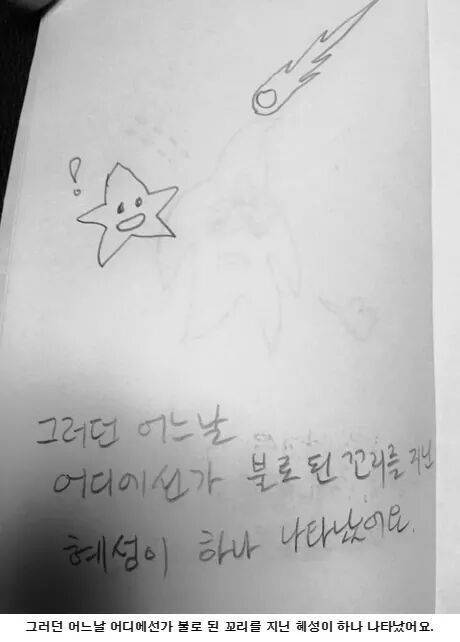 ?
그러던 어느날
어디에선가 불로 된 꼬리를 지닌
혜성이 하나 나타났어요.
그러던 어느날 어디에선가 불로 된 꼬리를 지닌 혜성이 하나 나타났어요.